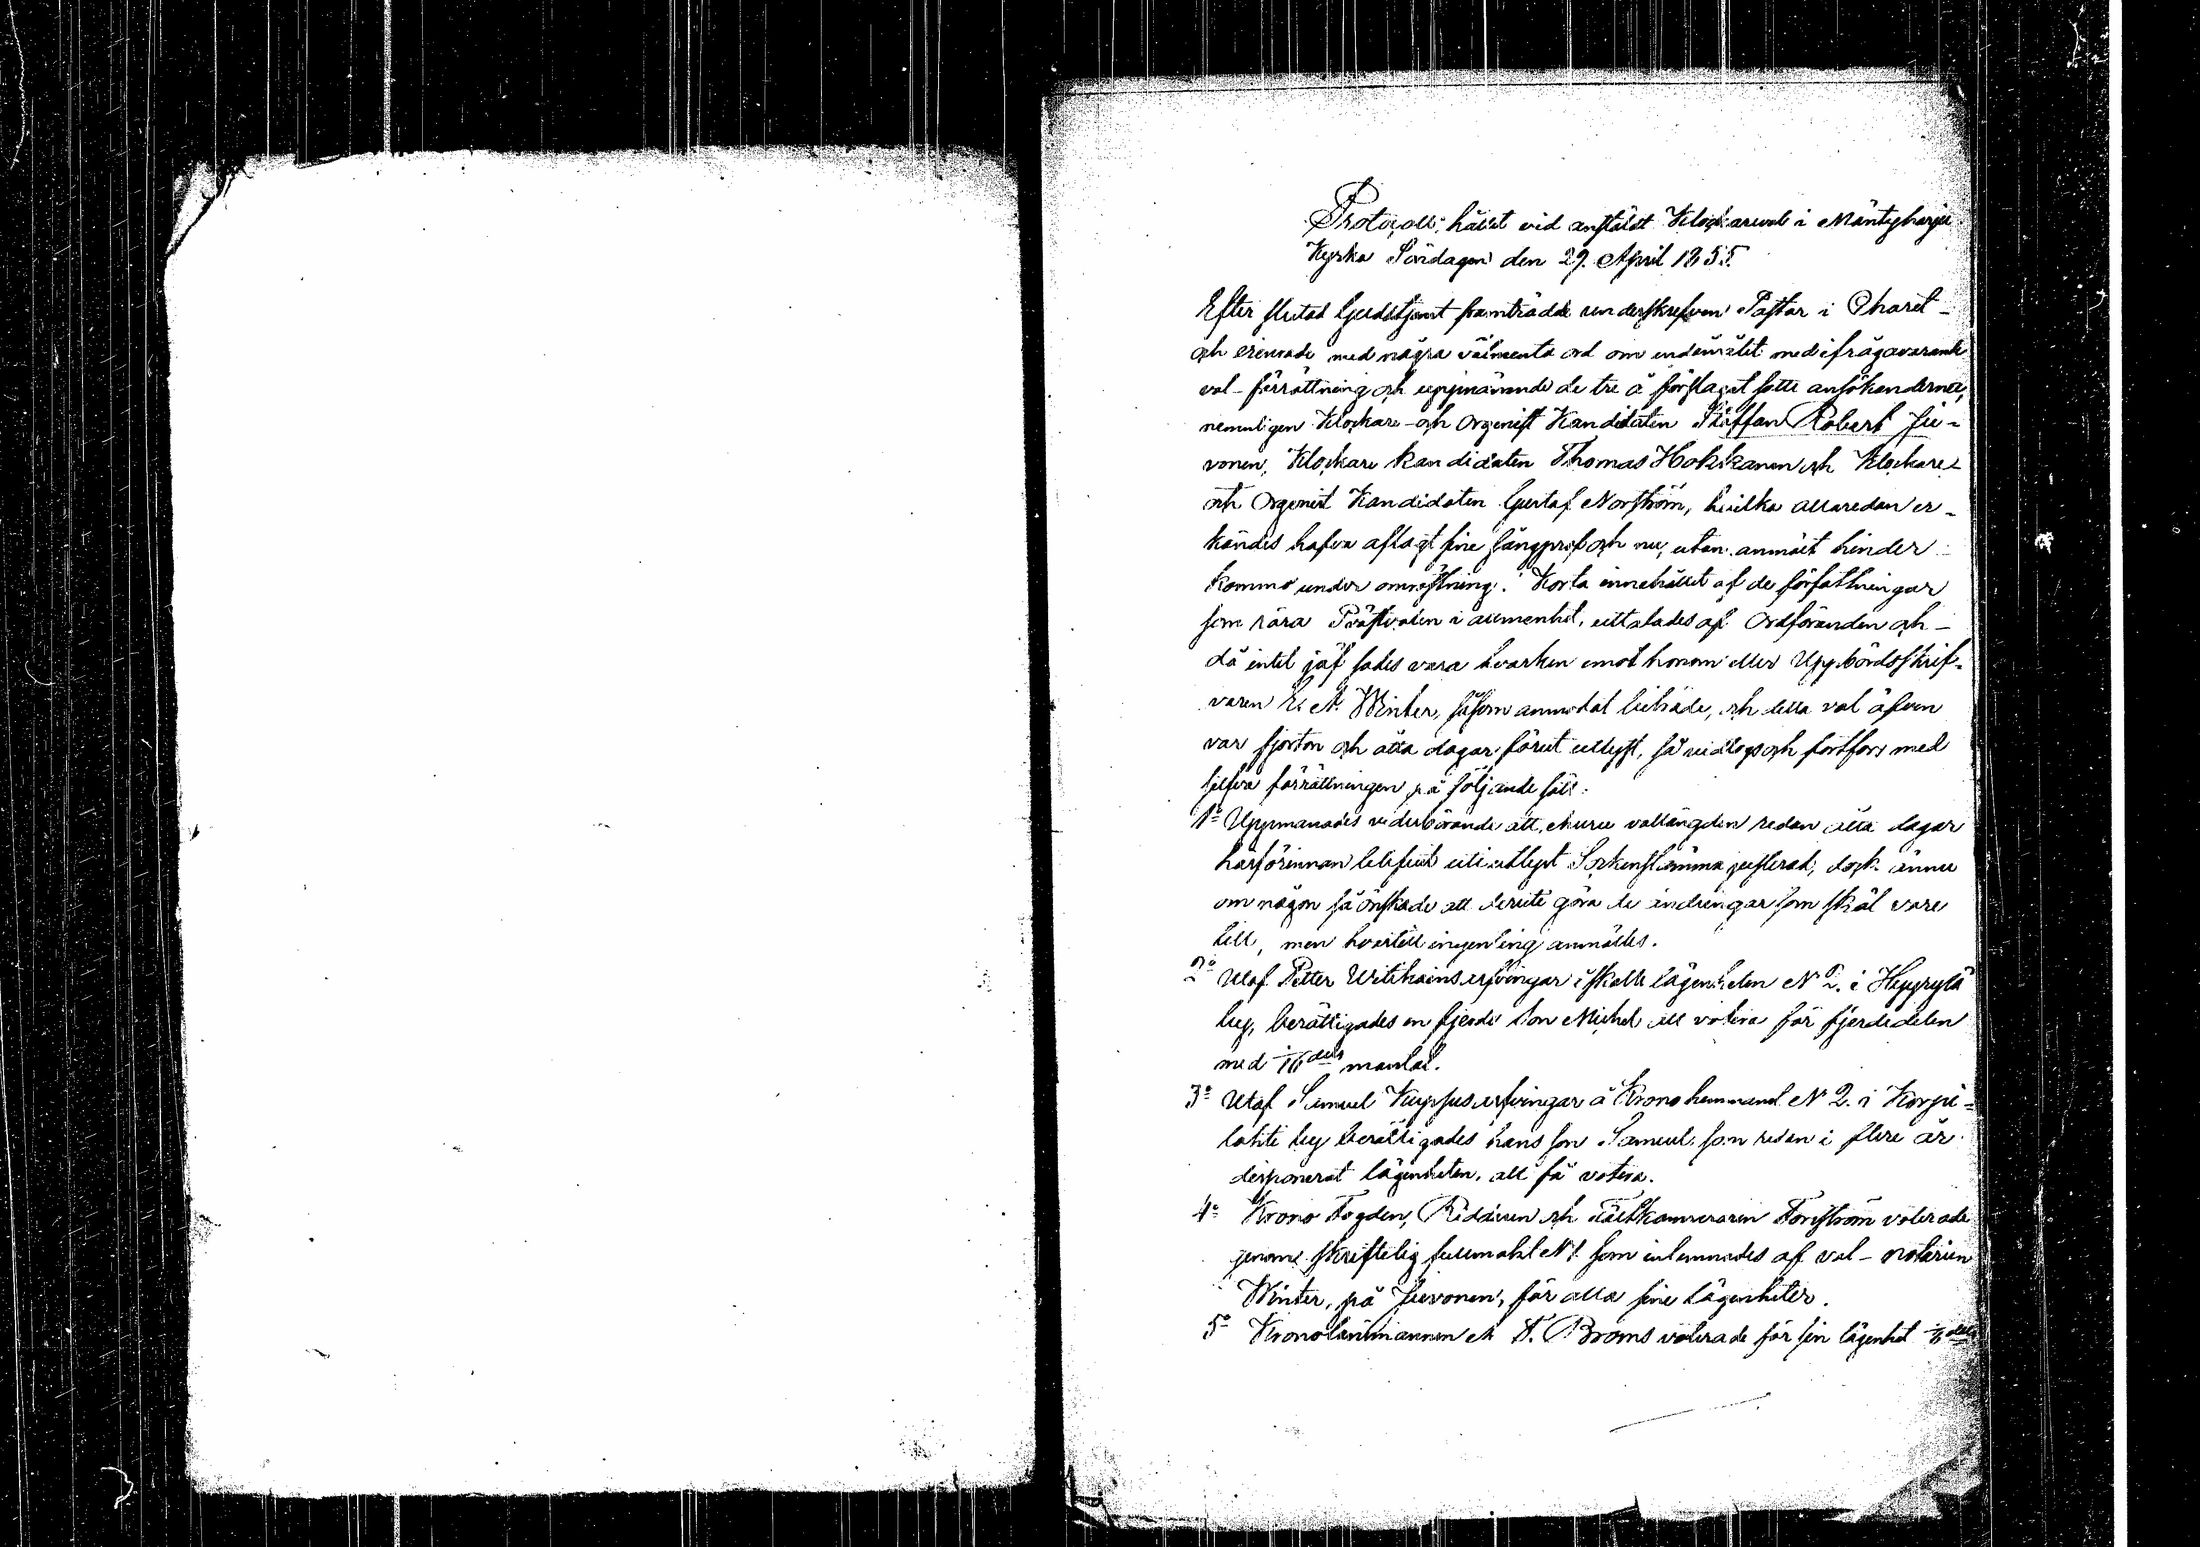 Protocoll, hållet vid anstäldt Klockareval i Mäntyharju
Kyrka Söndagen den 29. April 1855.
Efter slutad Gudstjenst framträdde underskrefven Pastor i Choret
och erinrade med några välmenta ord om endamålet med ifrågavarande
val-förrättning och uppnämnde de tre å förslaget satte ansökanderne,
nemnligen Klockare- och Orgenist Kandidaten Staffan Robert Ju-
vonen, Klockare kandidaten Thomas Hokkanen och Klockare-
och Orgenist Kandidaten Gustaf Norström, hvilka allaredan er-
kändes hafva aflagt sine sångprof och nu, utan anmält hinder
kommo under omröstning. Korta innehållet af de författningar
som röra Prästvalen i allmenhet, uttalades af Ordföranden och
då intet jäf sades vara hvarken emot honom eller Uppbördsskrif-
varen E. A. Winter, såsom anmodat biträde, och detta val äfven
var fjorton och åtta dagar förut utlyst, så vidtogs och fortfors med
sjelfva förrättningen på följande sätt:
1º Uppmanades vederbörande att, ehuru vallängden redan åtta dagar
härförinnan blifvit uti utlyst Sockenstämma justerad, dock ännu
om någon så önskade att deruti göra de ändringar som skäl vore
till, men hvartill ingenting anmältes.
2º Utaf Petter Utriainens arfvingar i skatte lägenheten N 2. i Hyyrylä
by, berättigades en fjerde son Michel att votera för fjerdedelen
med 1/16 dels mantal.
3º Utaf Samuel Kuppus arfvingar å Kronohemmanet N 2. i Korpi-
lahti by berättigades hans son Samuel, som redan i flere år
disponerat lägenheten, att få votera.
4º Krono Fogden, Riddaren och Fältkamreraren Forström voterade
genom skriftelig fullmakt N 1. som inlemnades af val-notarien
Winter, på Juvonen, för alla sine lägenheter.
5º Kronolänsmannen A. F. Broms voterade för sin lägenhet